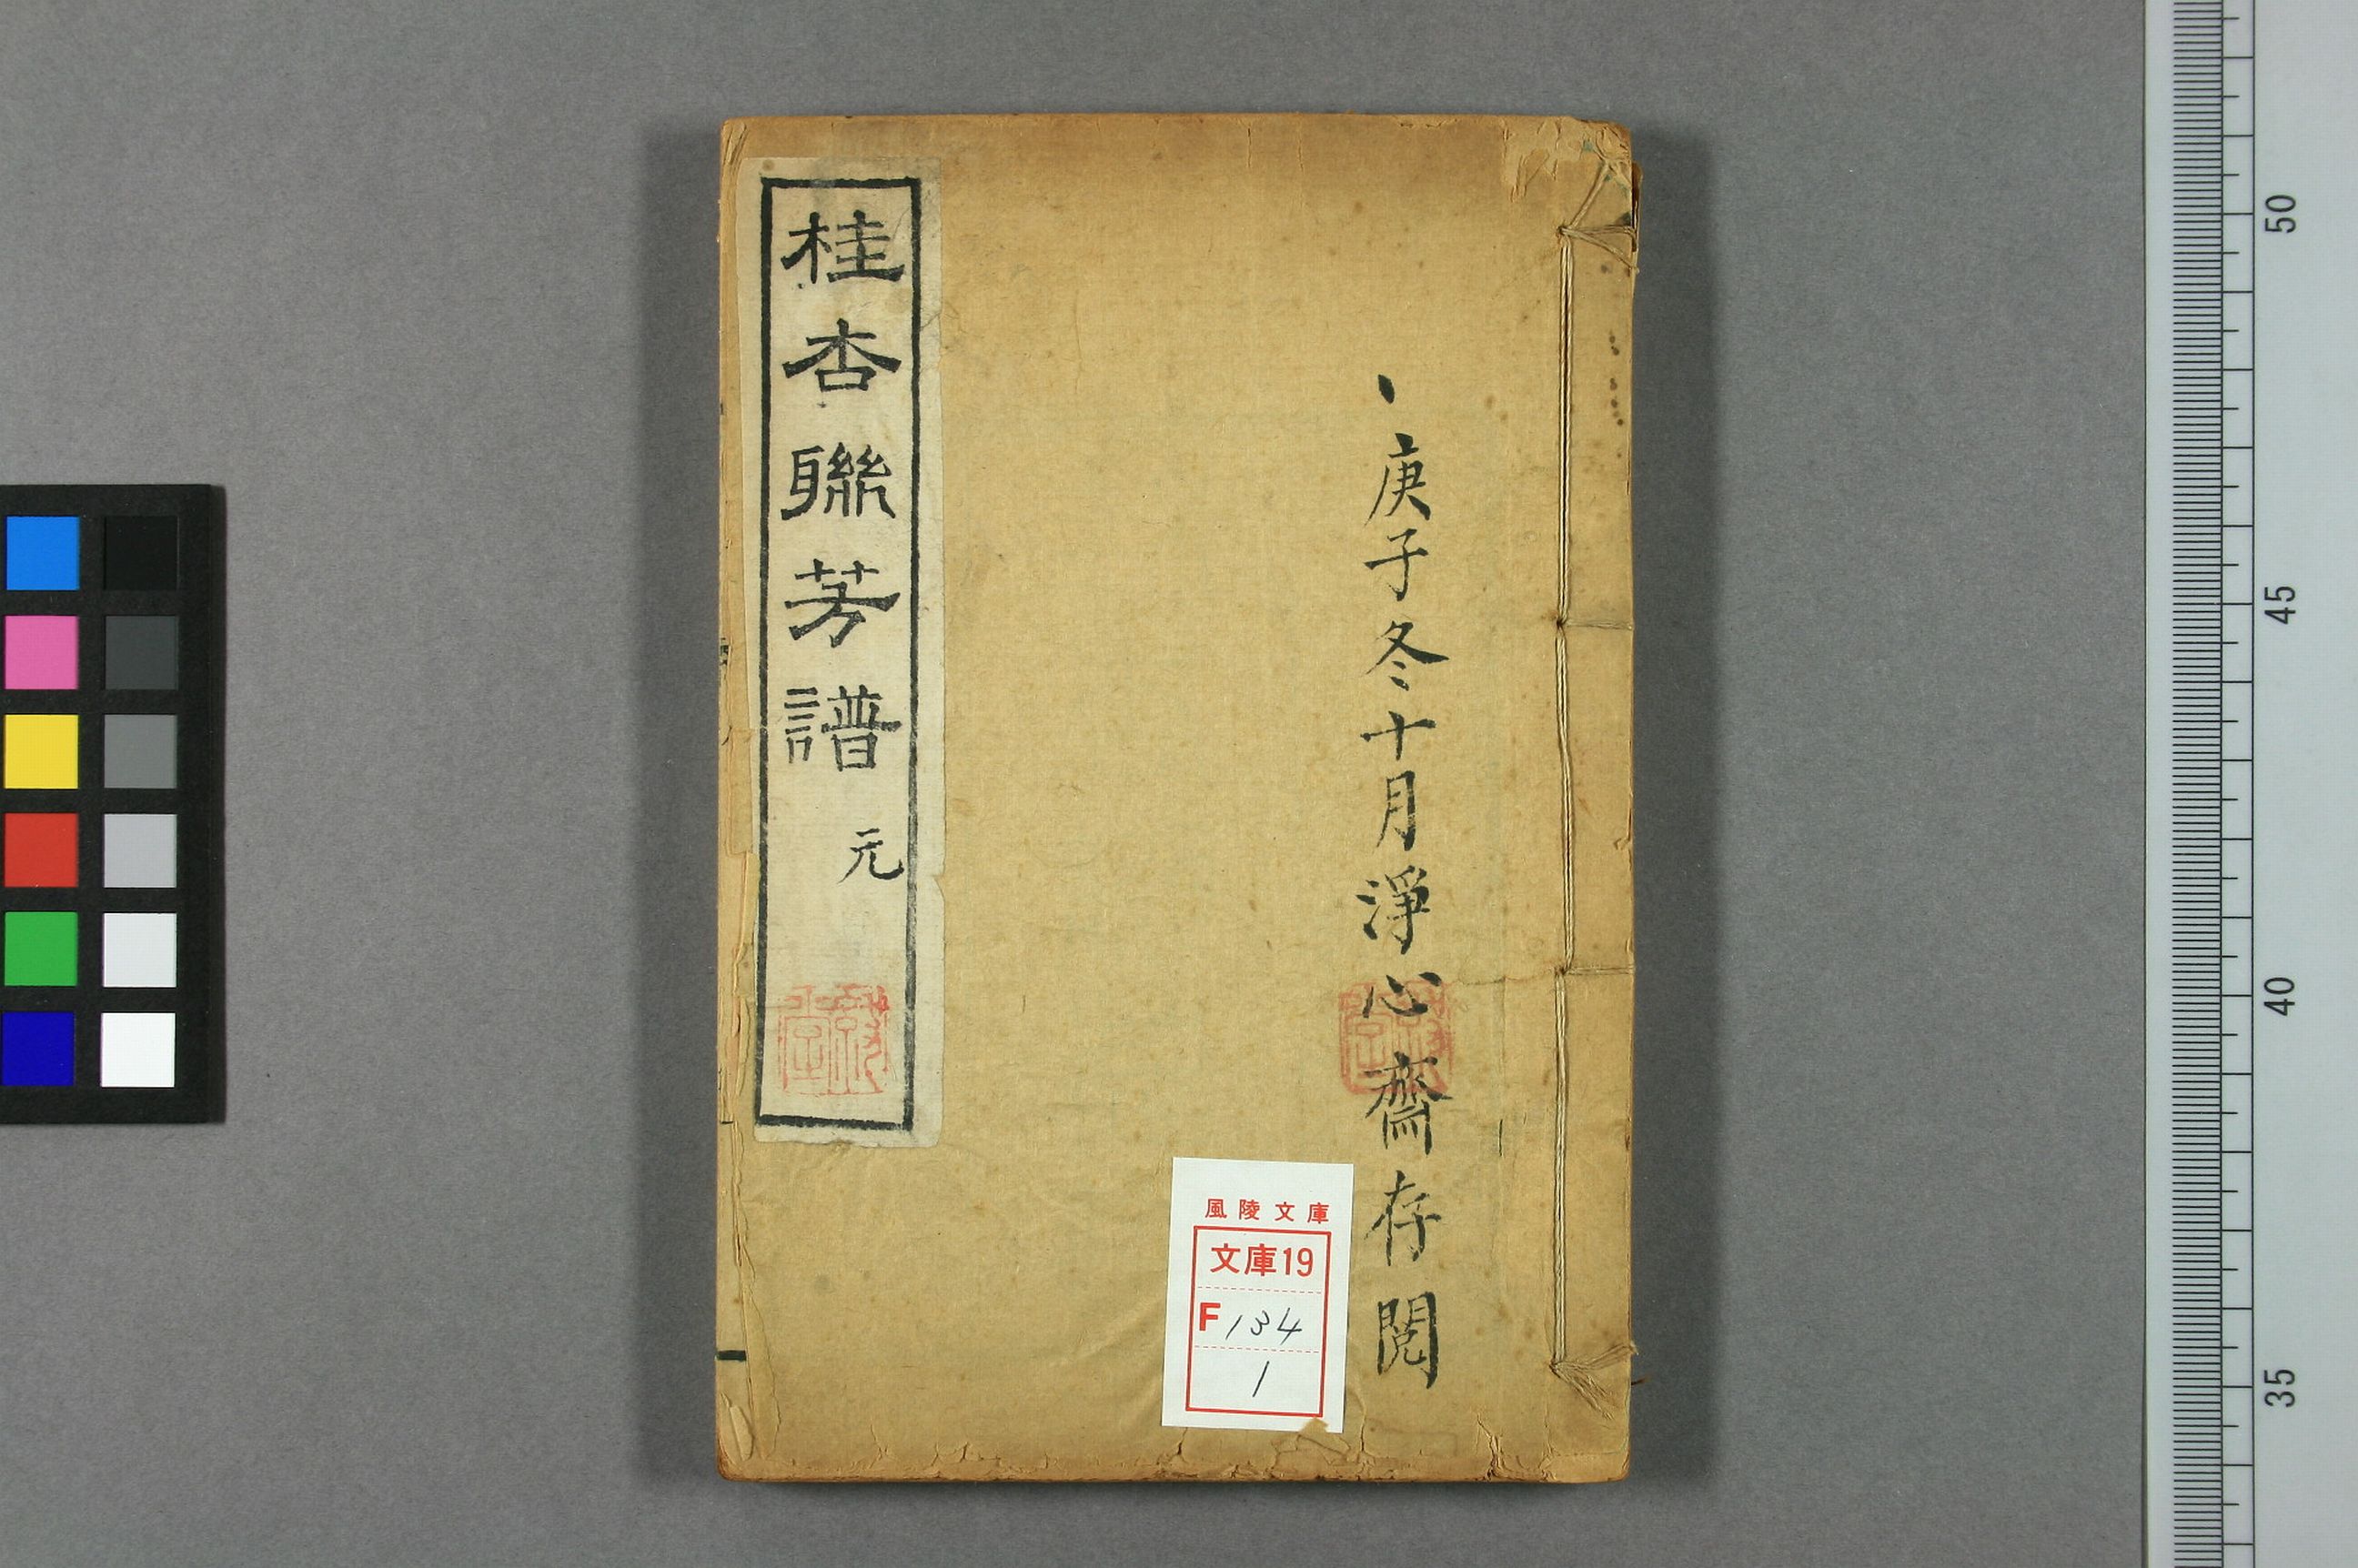 庚子冬十月淨心齋存閱
桂杏聮芳譜 元
風陵文庫
文庫19
F134
1
50
45
40
35